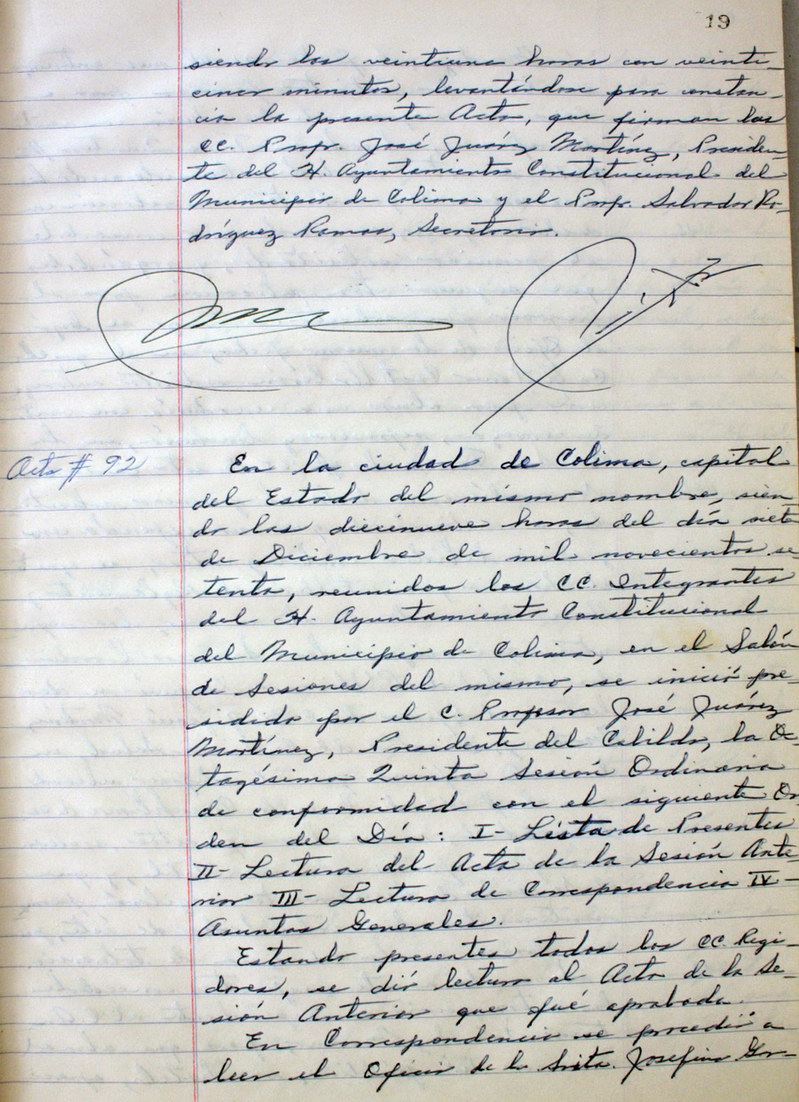 19
siendo las veintiuna horas con veinti-
cinco minutos, levantándose para constan-
cia la presente Acta, que firman los
CC. Profr. José Juárez Martínez, Presiden-
te del H. Ayuntamiento Constitucional del
Municipio de Colima y el Profr. Salvador Ro-
dríguez Ramos, Secretario.
Acta # 92
En la ciudad de Colima, capital
del Estado del mismo nombre, sien
do las diecinueve horas del día siete
de Diciembre de mil novecientos se
tenta, reunidos los CC. Integrantes
del H. Ayuntamiento Constitucional
del Municipio de Colima, en el Salón
de Sesiones del mismo, se inició pre-
sidida por el C. Profesor José Juárez
Martínez, Presidente del Cabildo, la Oc-
tagésima Quinta Sesión Ordinaria
de conformidad con el siguiente Or
den del Día: I- Lista de Presentes
II- Lectura del Acta de la Sesión Ante-
rior III- Lectura de Correspondencia IV-
Asuntos Generales.
Estando presentes todos los CC. Regi-
dores, se dió lectura al Acta de la Se-
sión Anterior que fué aprobada.
En Correspondencia se procedió a
leer el Oficio de la Srita. Josefina Gon-